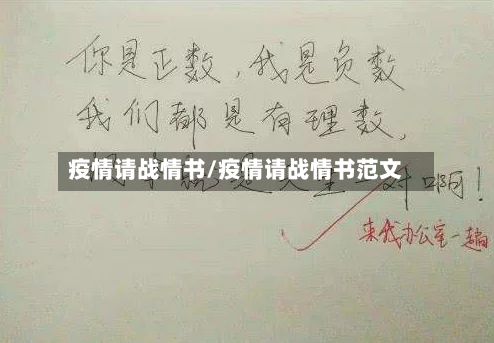 你是正数，我是负数
我们都是有理数，
疫情请战情书/疫情请战情书范文
对啊！
来我办公室一趟